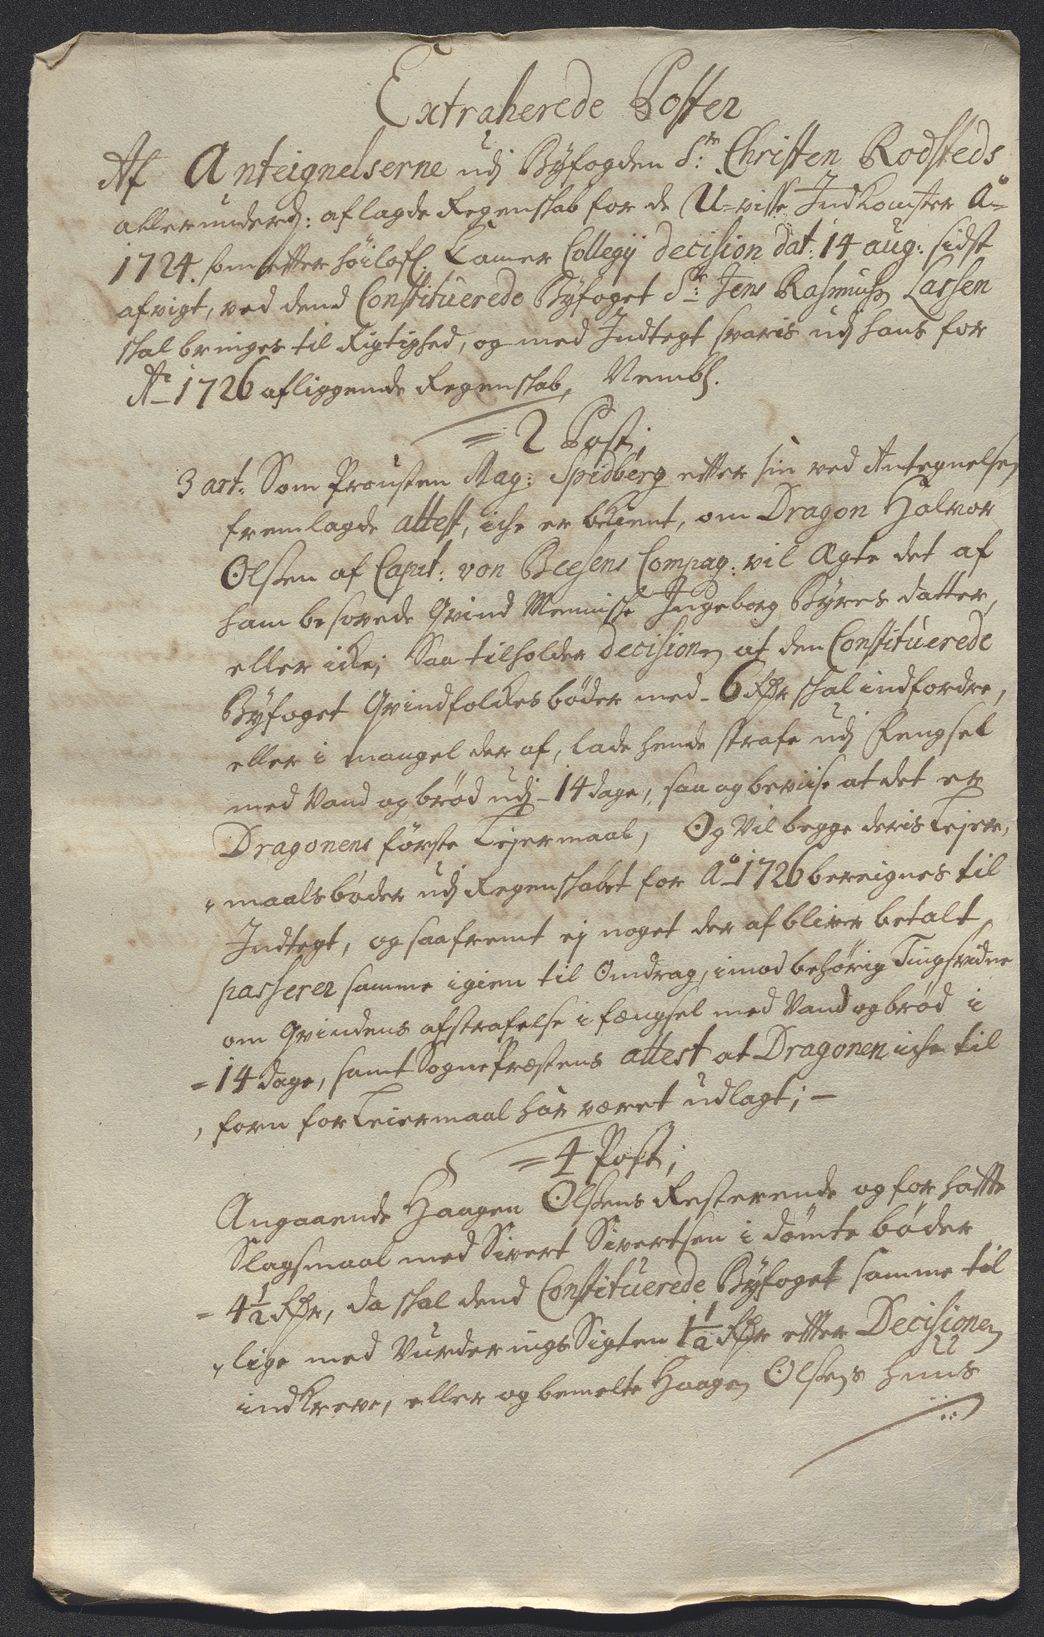 Extraherede Poster
Af Anteignelserne udj Byfogden Sr: Christen Rodsteds
allerunderd: aflagde Regenskab for de U-visse Indkomster Ao
1724. som efter höilofl: Camer Collegij decision dat: 14 aug: sidst
afvigt, ved dend Constituerede Byfoget Sr: Jens Rasmusen Lassen
skal bringes til Rigtighed, og med Indtegt svaris udj hans for
Ao 1726 afliggende Regenskab, Nembl.
= 2 Post;
3 art: Som Prousten Mag: Spidberg efter sin ved Antegnelsen
fremlagde attest, iche er bekient, om Dragon Halvor
Olsen af Capit: von Compag: vil Ægte det af
ham besovede Qvind Menniske Ingeborg Byres datter,
eller icke; Saa tilholder decisionen at den Constituerede
Byfoget Qvindfolckes bøder med - 6 Rdr skal indfordre,
eller i mangel der af, lade hende straffe udj Fengsel
med Vand og brød udj - 14 dage, saa og beviise at det er
Dragonens første Lejermaal, Og Vil begge deris Lejer,
maals bøder udj Regenskabet for Ao 1726 bereignes til
Indtegt, og saafremt ej noget der af bliver betalt
passerer samme igien til Omdrag, imod behørig Tingsvidne
om Qvindens afstraffelse i fængsel med Vand og brød i
= 14 dage, samt SognePræstens attest at Dragonen iche til
forn for Leiermaal har været udlagt; -
= 4 Post;
Angaaende Haagen Olsens Resterende og for hafte
Slagsmaal med Sivert Sivertsen i dømte bøder
= 4½ Rdr, da skal dend Constituerede Byfoget samme til
lige med VurderingsSigten 1½ Rdr efter Decisionen
indkreve, eller og bemelte Haagen Olsens huus